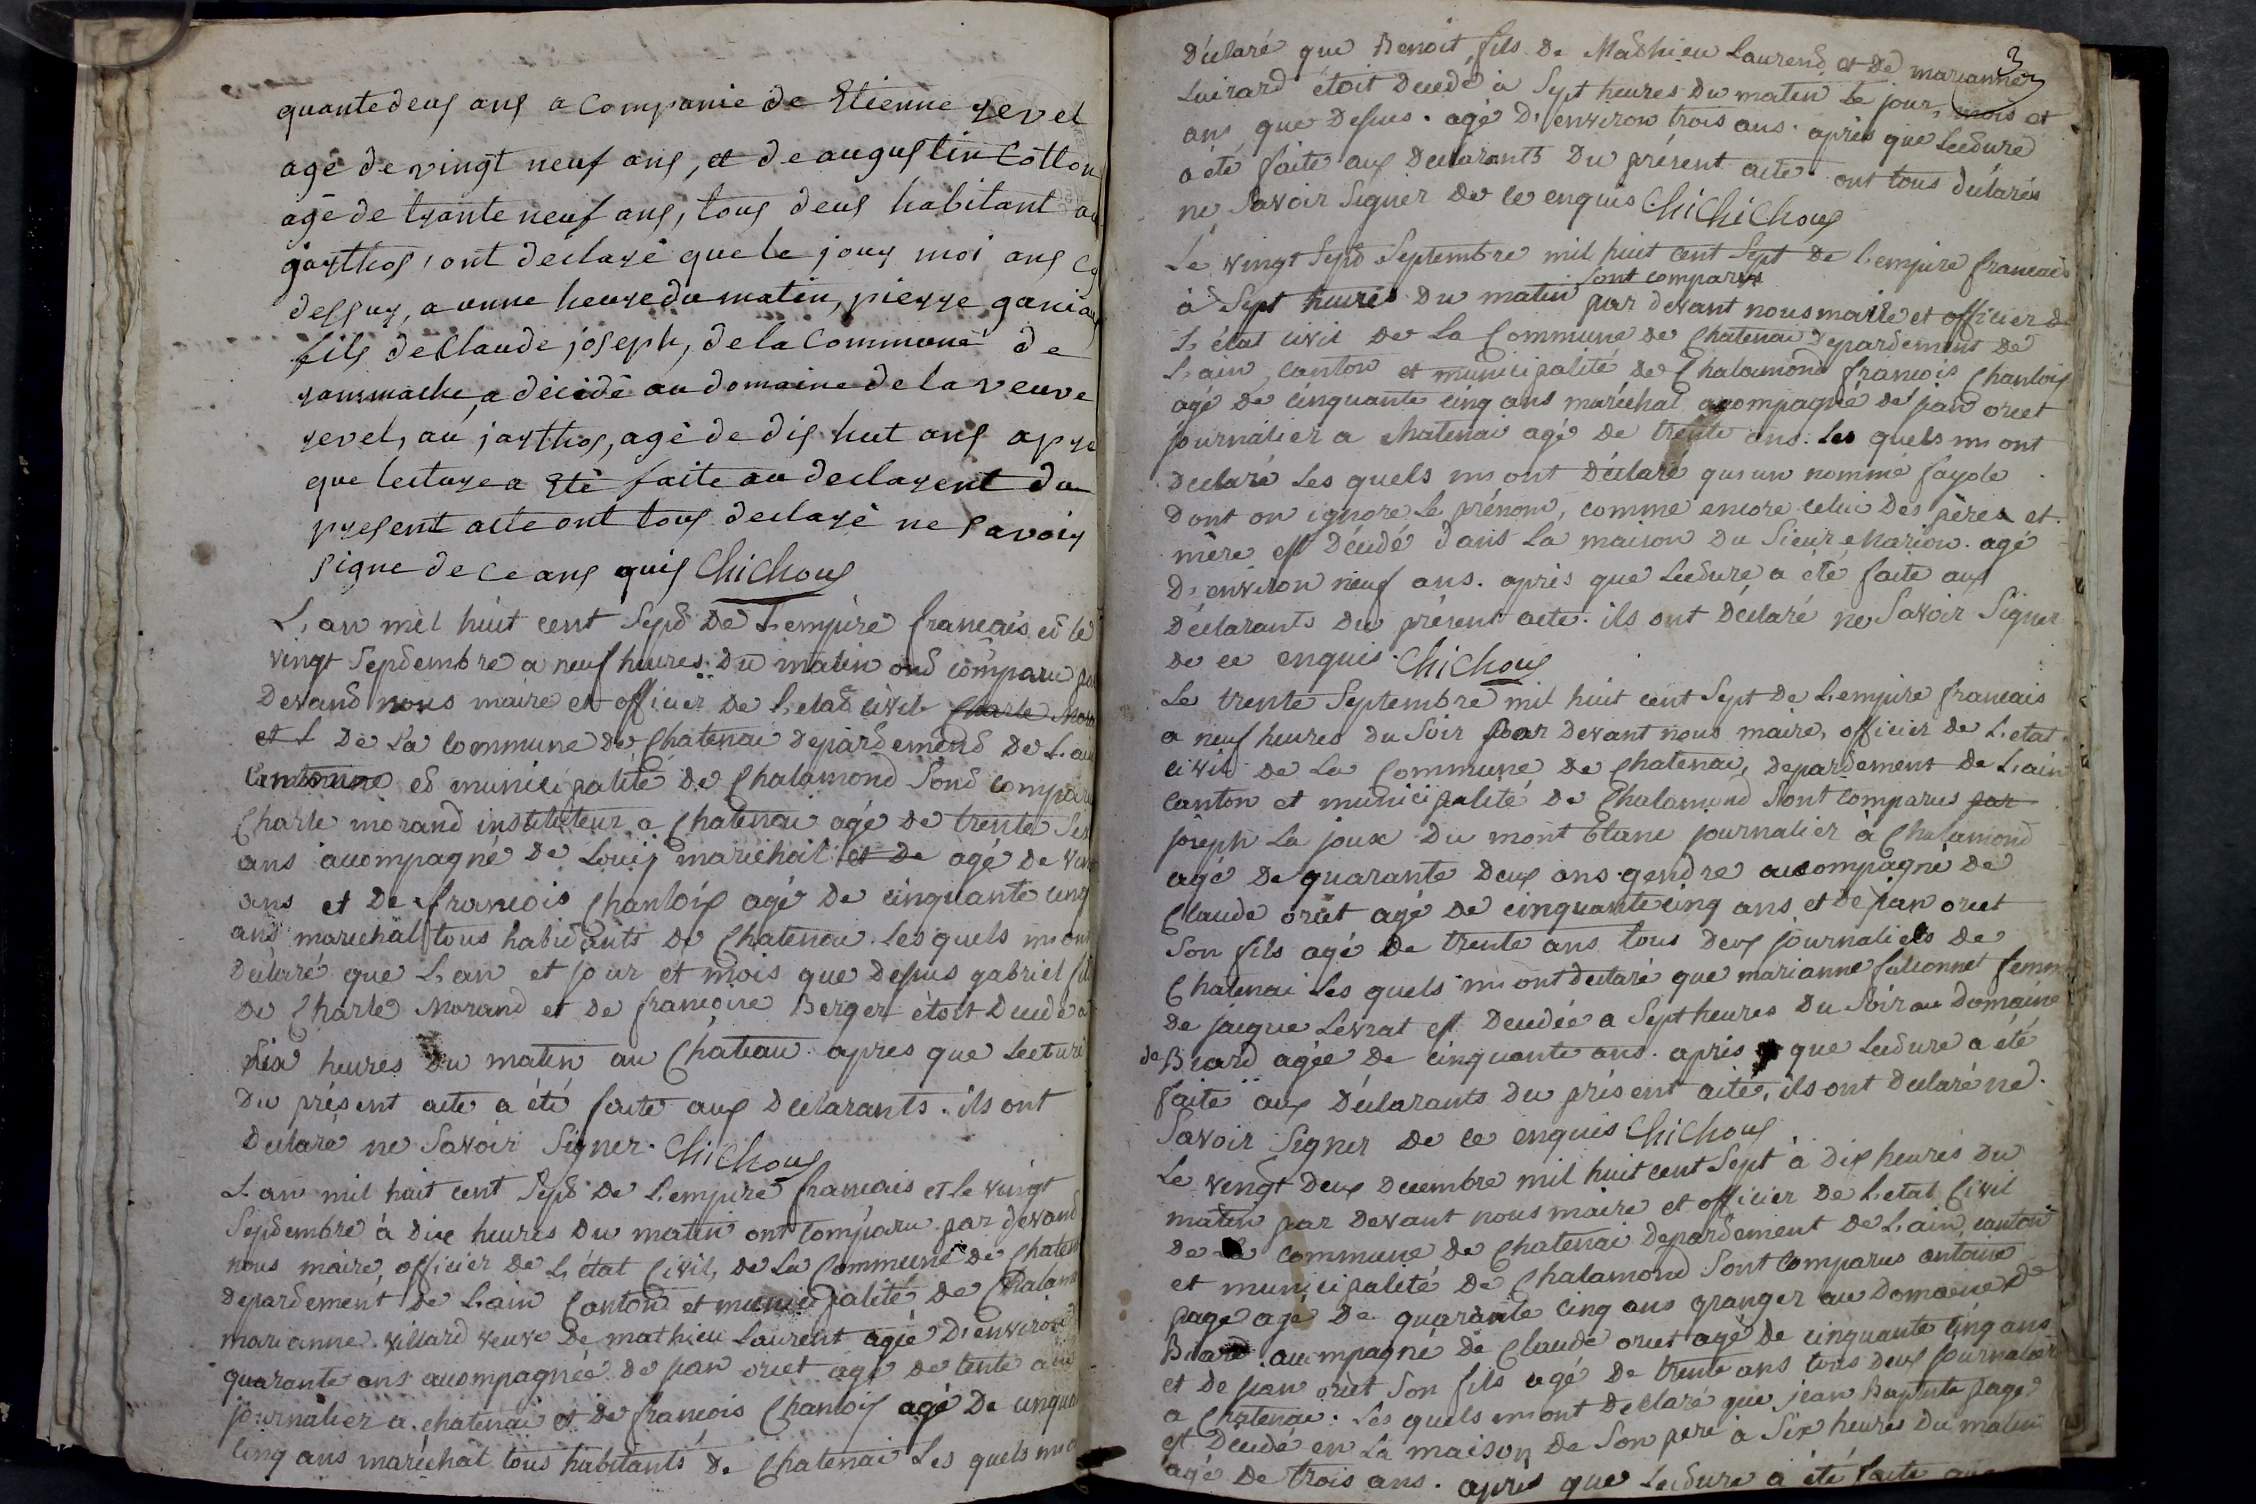 quantedeus ans a Companie de Etienne revel
agé de vingt neuf ans, et de augustin Cotton
agé de trante neuf ans, tous deus habitant au
garthos, ont declaré que le jour moi ans
dessus, a onne heure du matin, pierre
fils de Claude joseph, de la Commune de
a décidé au domaine de la veuve
revel, au jarthos, agé de dis hut ans apre
que lecture a été faite au declarent du
present acte ont tous declaré ne savoir
signe de ce ans quis Chichoux
L'an mil huit cent Sept de L'empire français et le
vingt Septembre a neuf heures du matin ont comparu par
Devant nous maire et officier de L'etat civil Charle Mora
et L de La Commune de Chatenai departement de L'ain
et municipalité de Chalamond Sont comparu
Charle morand instituteur a Chatenai agé de trente
ans acompagné de Louis marechal et de agé de
ans et de francois Chanloix agé de cinquante cinq
ans marechal tous habitants de Chatenai. Les quels m'ont
Déclaré que L'an et jour et mois que Dessus gabriel fils
de Charle Morand et de françoise Berger étoit Decedé a
Six heures du matin au Château. apres que Lecture
Du présent acte a été faite aux Déclarants. ils ont
Declaré ne Savoir Signer. Chichoux
L'an mil huit cent Sept De L'empire francais et Le vingt
Septembre à dix heures Du matin ont Comparu par devant
nous maire, officier de L'état Civil, de La Commune de Chaten
departement de L'ain Canton et municipalité de Chalam
marianne villard veuve de mathieu Laurent agée D'environ
quarante ans acompagnée de jean oriet agé de tente ans
journalier a chatenai et de francois Chanloix agé De cinquan
Cinq ans maréchal tous habitants de Chatenai Les quels m'o
3
Déclaré que Benoit fils de Mathieu Laurend et De marianne
étoit Decedé à Sept heures Du matin Le jour, mois et
ans que Dessus. agé D'environ trois ans. après que Lecture
a été faite aux Declarants Du présent acte. ont tous déclarés
ne Savoir Signer de ce enquis Chichoux
Le vingt Sept Septembre mil huit cent Sept de L'empire francais
à Sept heures du matin sont comparus par devant nous maire et officier de
L'état civil de La Commune de Chatenai Departement de
L'ain, canton et municipalité de Chalamond francois Chanloix
agé de cinquante cinq ans maréchal acompagné de jean oriet
journalier a chatenai agé de trente ans. Les quels m'ont
Declaré Les quels m'ont Déclaré qu'un nommé fayole
dont on ignore Le prénom, comme encore celui Des pères et
mère est Décédé dans La maison Du Sieur Marion. agé
D'environ neuf ans. après que Lecture a été faite aux
Déclarants Du présent acte. ils ont Déclaré ne Savoir Signer
de ce enquis. Chichoux
Le trente Septembre mil huit cent Sept de L'empire francais
a neuf heures du Soir par devant nous maire, officier de L'etat
civil de La Commune de Chatenai, departement de L'ain
canton et municipalité de Chalamond Sont Comparus par
joseph La joux Du mont blanc journalier à Chalamond
agé de quarante Deux ans gendre accompagné de
Claude oriet agé de cinquante cinq ans et de jean oriet
Son fils agé de trente ans tous deux journaliers de
Chatenai Les quels m'ont declaré que marianne falconnet femme
de jacque Levrat est Decedée a Sept heures Du Soir au Domaine
de Biard agée de cinquante ans. après que Lecture a été
faite aux Déclarants Du présent acte, ils ont Declaré ne
Savoir Signer de ce enquis Chichoux
Le vingt Deux Decembre mil huit cent Sept à Dix heures Du
matin par devant nous maire et officier de L'etat Civil
de La commune de Chatenai Departement de L'ain, canton
et municipalité de Chalamond Sont Comparus antoine
page agé De quarante cinq ans granger au Domaine de
Biard. acompagné de Claude oriet agé de cinquante cinq ans
et de jean oriet Son fils agé De trente ans tous deux journalier
a Chatenai. Les quels m'ont Declaré que jean Baptiste page
est Décédé en La maison de Son pere à Six heures Du matin
agé de trois ans. après que Lecture a été faite aux